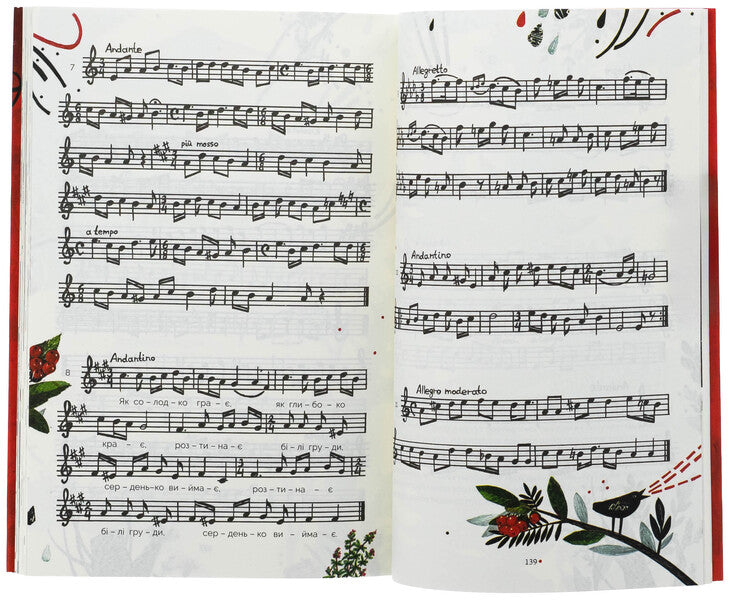 7
Andante
più mosso
a tempo
8
Andantino
Як со – лод – ко гра – є. як гли – бо – ко
кра – є. роз – ти – на – є бі – лі гру – ди.
сер – день – ко ви – йма – є. роз – ти – на – є
бі – лі гру – ди. сер – день – ко ви – йма – є.
Allegretto
Andantino
Allegro moderato
139